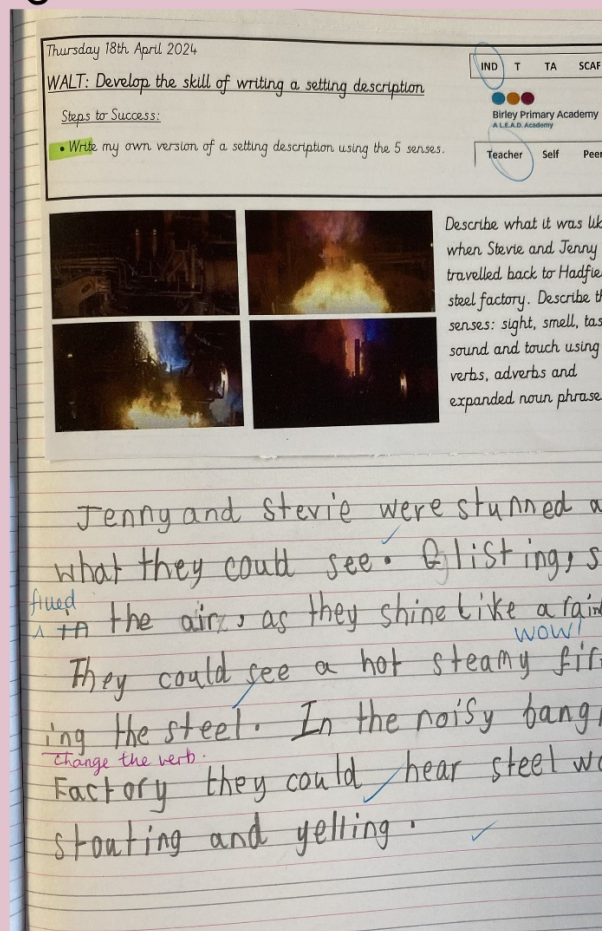 Thursday 18th April 2024
WALT: Develop the skill of writing a setting description
Steps to Success:
• Write my own version of a setting description using the 5 senses.
IND T TA SCAF
Birley Primary Academy
A L.E.A.D. Academy
Teacher Self Peer
Describe what it was lik
when Stevie and Jenny
travelled back to Hadfie
steel factory. Describe th
senses: sight, smell, tas
sound and touch using
verbs, adverbs and
expanded noun phrase
Jenny and Stevie were stunned a
what they could see. Glisting, s
the air, as they shine like a rain
WOW!
They could see a hot steamy fir
ing the steel. In the noisy bang
change the verb.
Factory they could hear steel wo
stouting and yelling.